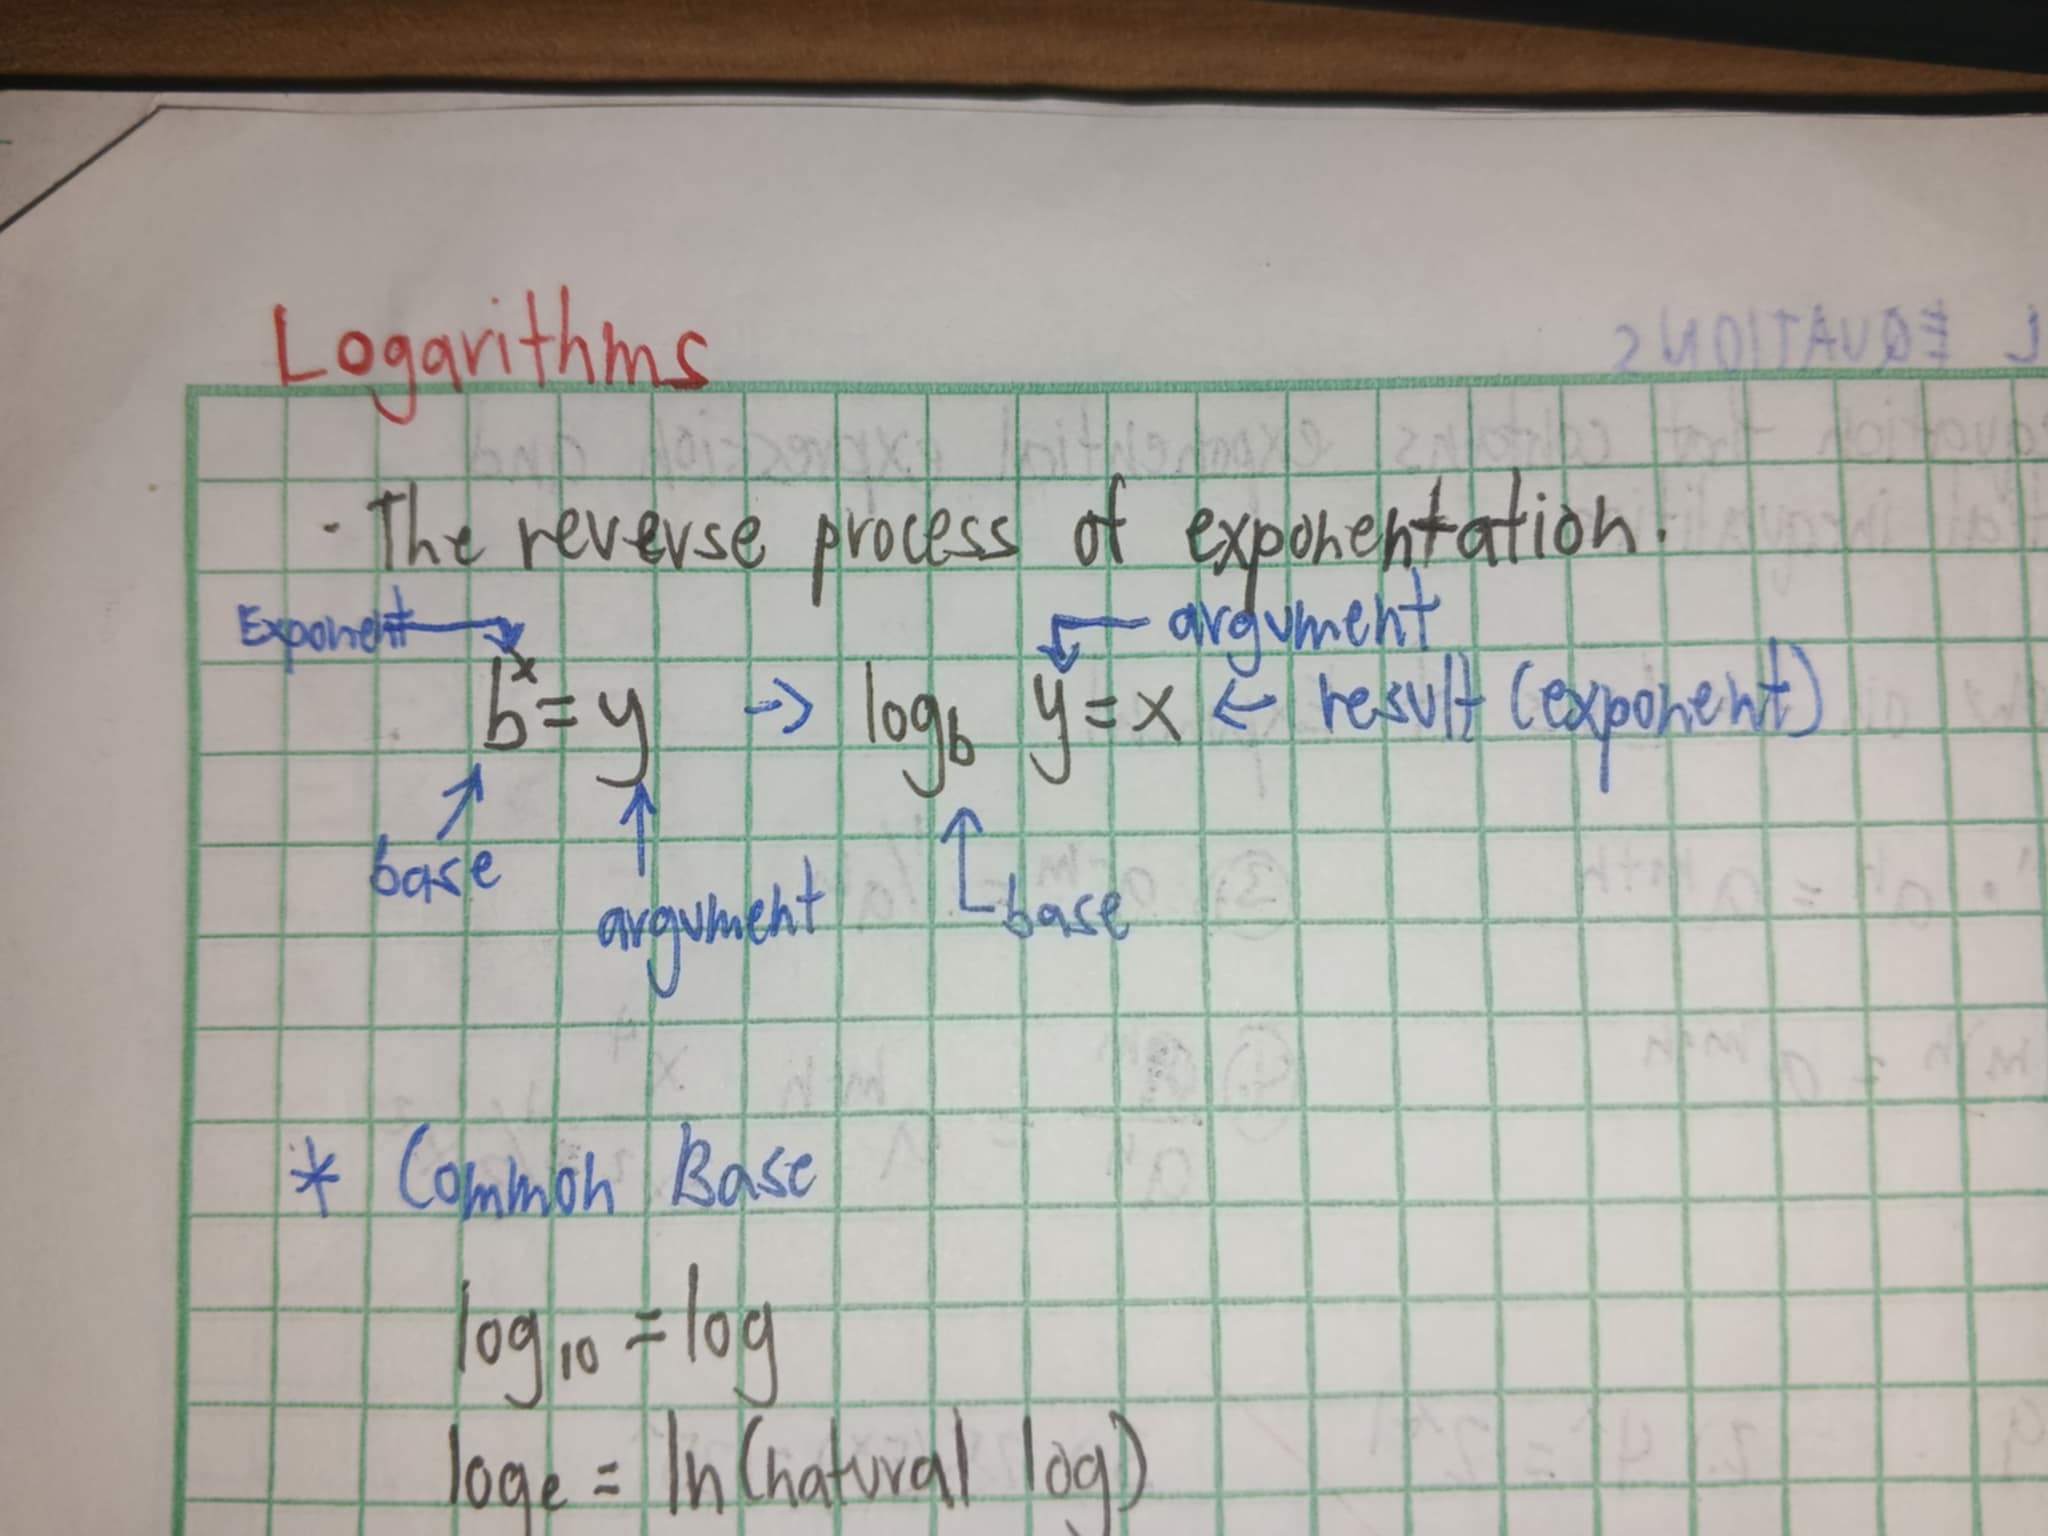 Logarithms
· The reverse process of exponentation.
Exponent argument
bˣ = y → log_b y = x ← result (exponent)
base argument base
* Common Base
log₁₀ = log
logₑ = ln (natural log)